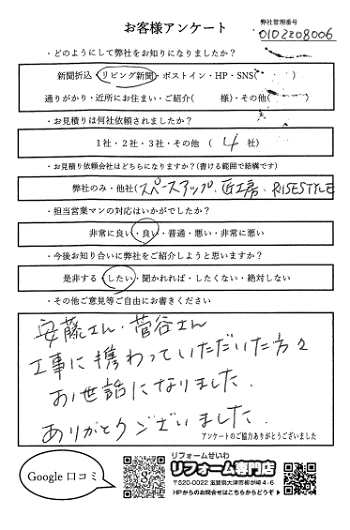 お客様アンケート
弊社管理番号
0102208006
・どのようにして弊社をお知りになりましたか？
新聞折込・リビング新聞・ポストイン・HP・SNS( )
通りがかり・近所にお住まい・ご紹介( 様)・その他( )
・お見積りは何社依頼されましたか？
1社・2社・3社・その他 ( 4 社)
・お見積り依頼会社はどちらになりますか？(書ける範囲で結構です)
弊社のみ・他社(スペースアップ、匠工房、RISESTYLE
・担当営業マンの対応はいかがでしたか？
非常に良い・良い・普通・悪い・非常に悪い
・今後お知り合いに弊社をご紹介しようと思いますか？
是非する・したい・聞かれれば・したくない・絶対しない
・その他ご意見等ご自由にお書きください
安藤さん・菅谷さん
工事に携わっていただいた方々
お世話になりました。
ありがとうございました。
アンケートのご協力ありがとうございました
Google 口コミ
リフォームせいわ
リフォーム専門店
〒520-0022 滋賀県大津市柳が崎4-6
HPからのお問合せはこちらからどうぞ